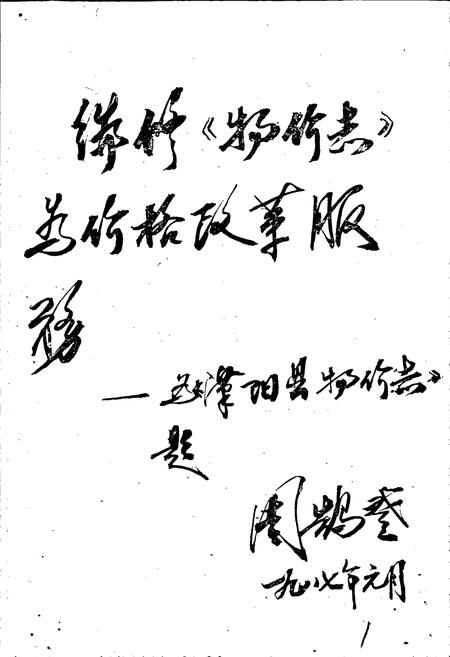 编修《物价志》
为价格改革服
务
—为汉阳县物价志》
题
周鹄
一九八七年元月